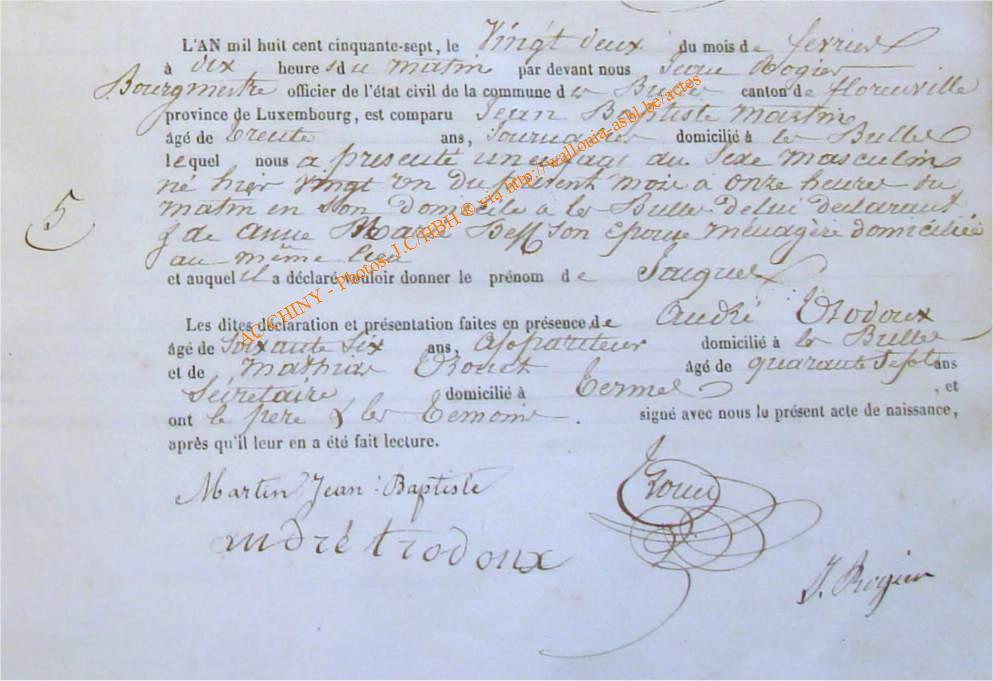 L'AN mil huit cent cinquante-sept, le Vingt deux du mois de fevrier
à dix heures du matin par devant nous Jean Rogier
Bourgmestre officier de l'état civil de la commune de les Bulles canton de florenville
province de Luxembourg, est comparu Jean Baptiste Martin
âgé de trente ans, domicilié à les Bulles
lequel nous a presenté un enfant du Sexe masculin
né hier vingt un du présent mois à onze heures du
matin en son domicile à les Bulles de lui declarant
5
& de anne Marie son épouse ménagère domiciliée
au même lieu
et auquel il a déclaré vouloir donner le prénom de Jaques
Les dites déclaration et présentation faites en présence de André Trodoux
âgé de soixante six ans, appariteur domicilié à les Bulles
et de Mathias âgé de quarante sept ans
Sécretaire domicilié à Termes, et
ont le père & les temoins signé avec nous le présent acte de naissance,
après qu'il leur en a été fait lecture.
Martin Jean Baptiste
andré trodoux
J. Rogier
AC CHINY - Photos J.C/HBH ® via http://wallonia-asbl.be/actes